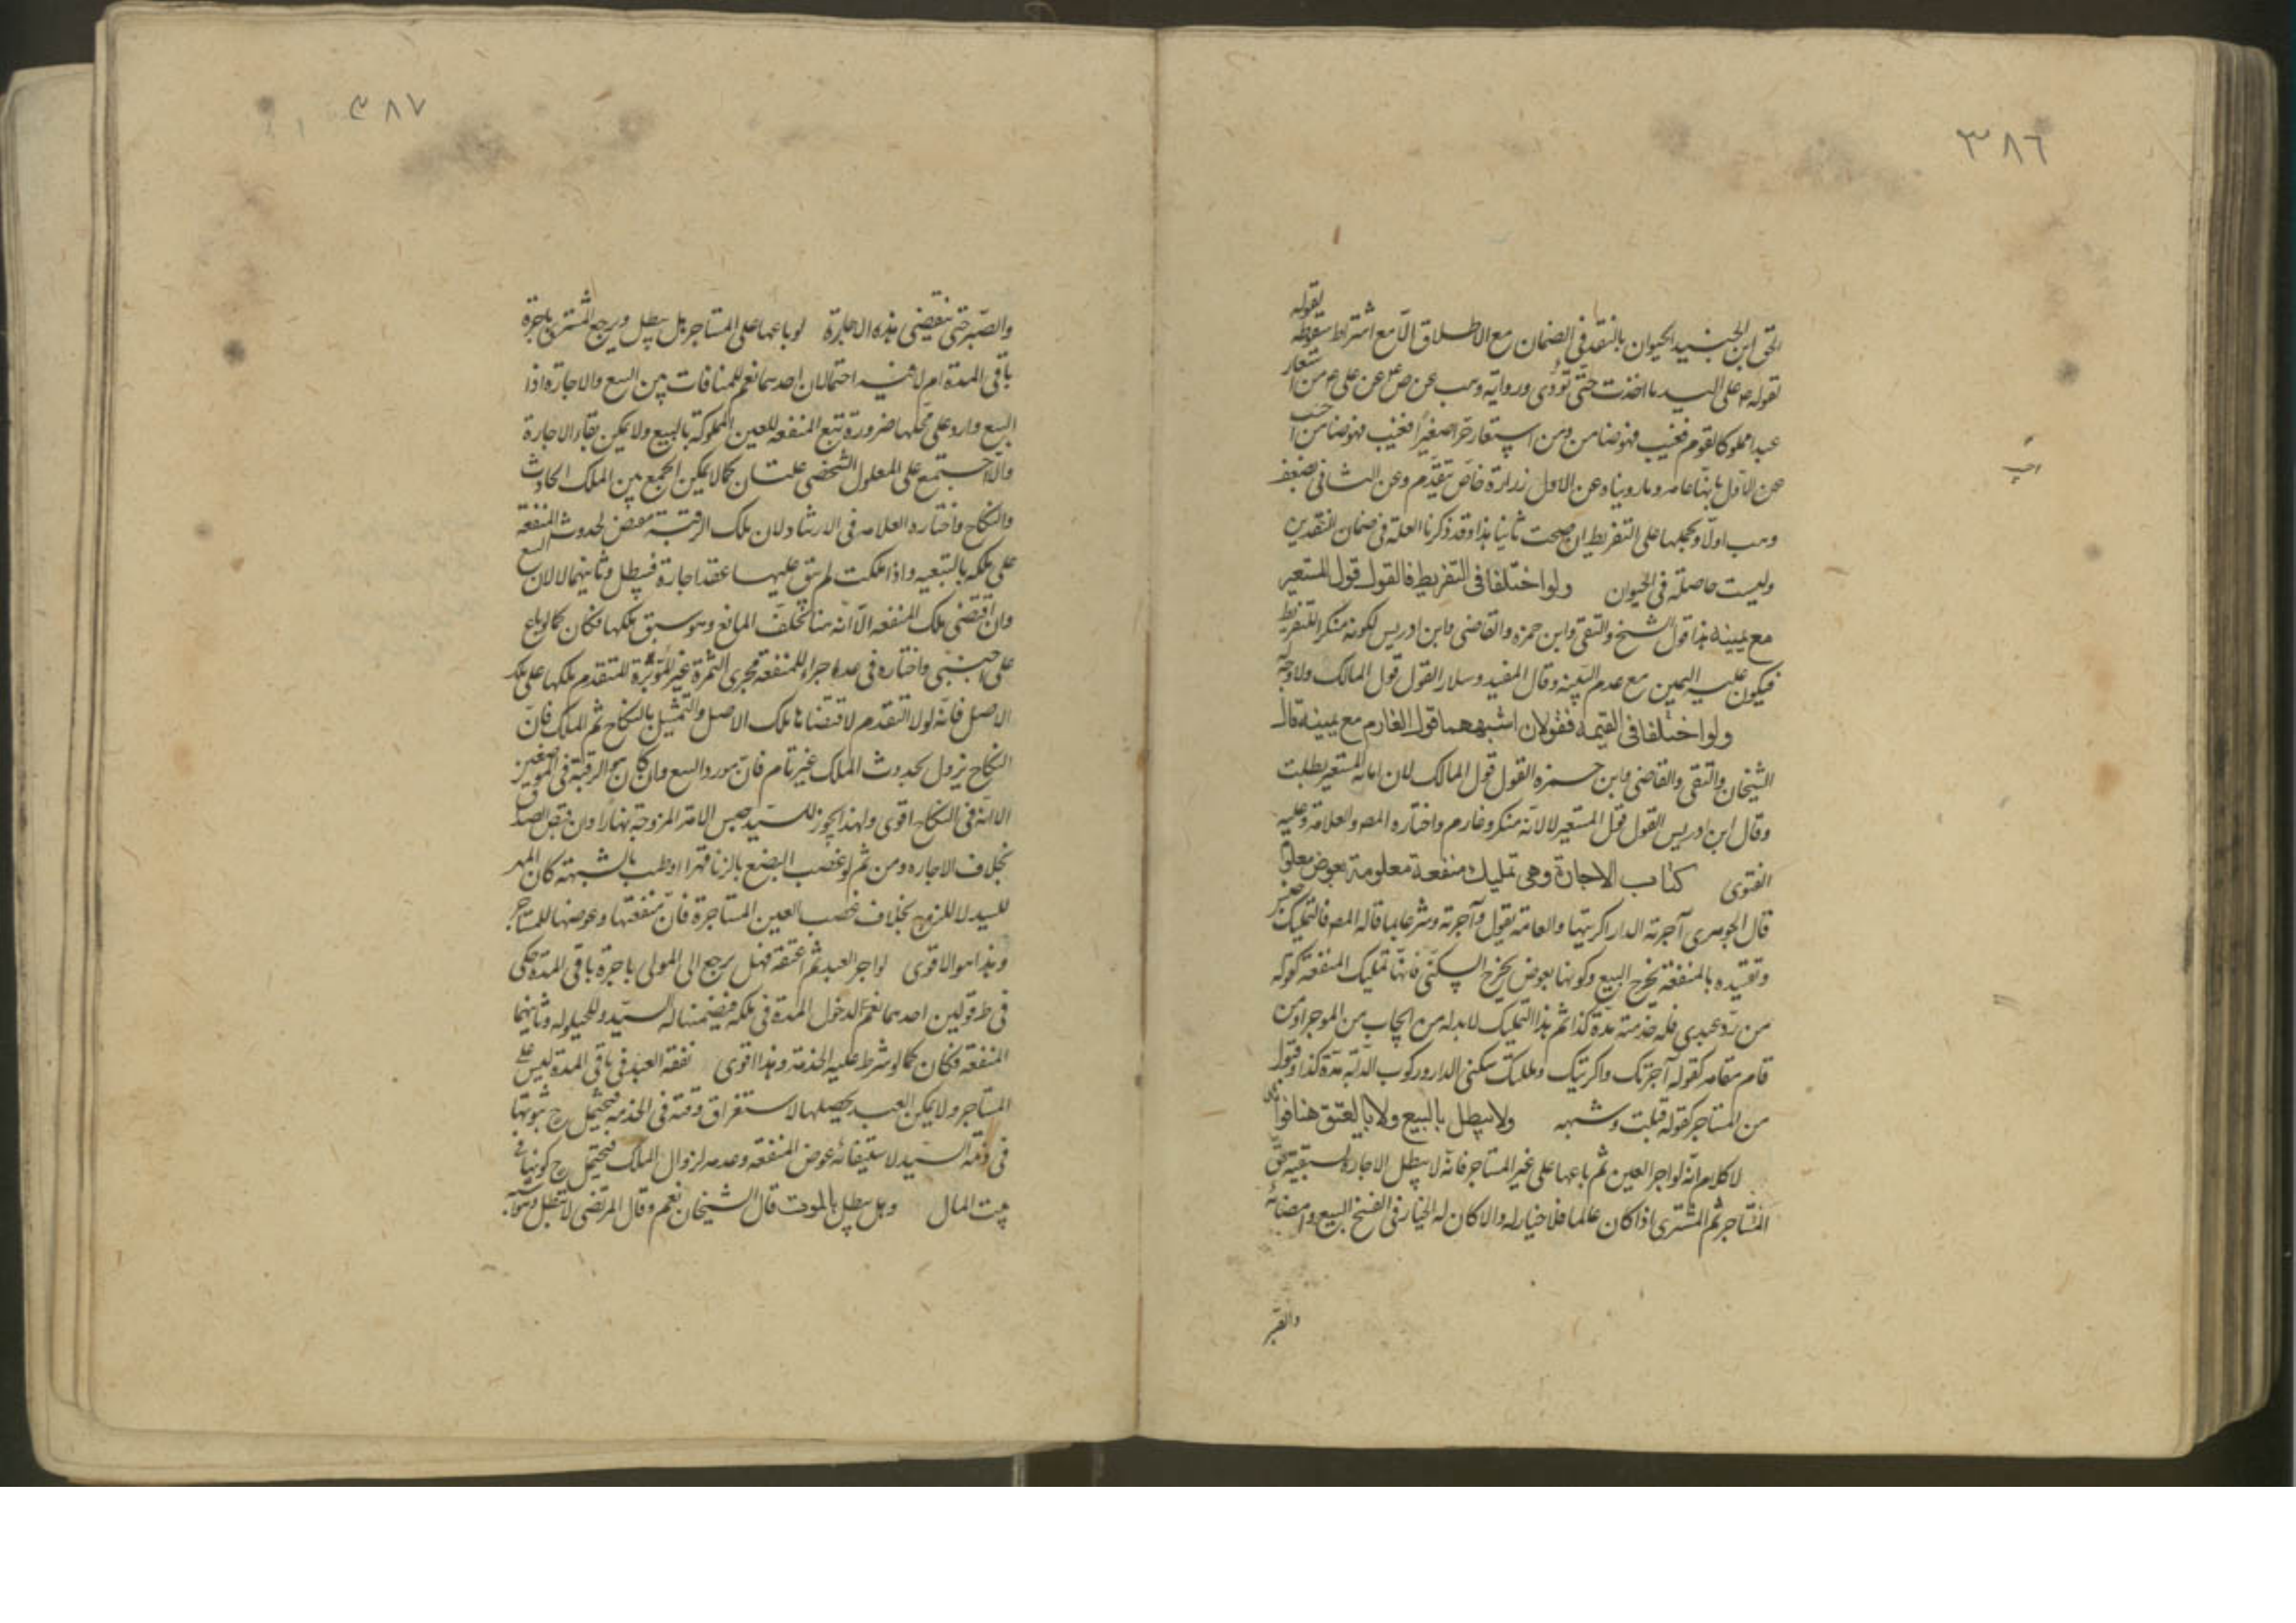 ٣٨٦
بقوله
الحق ابن الجنيد الحيوان بالنقد في الضمان مع الاطلاق الا مع اشتراط سقوطه
لقوله ع على اليد ما اخذت حتى تؤدى ورواية وهب عن ص ع عن على ع من استعار
عبدا مملوكا لقوم فعيب فهو ضامن ومن استعار حرا صغيرا فعيب فهو ضامن اجيب
عن الاول بانها عامه وما رويناه عن الاول زرارة خاص تقدم وعن الثانى بضعف
وهب اولا وبحملها على التفريط ان صحت ثانيا هذا وقد ذكرنا العلة فى ضمان النقدين
وليست حاصلة فى الحيوان ولو اختلفا فى التفريط فالقول قول المستعير
مع يمينه هذا قول الشيخ والتقى وابن حمزه والقاضى وابن ادريس لكونه منكرا للتفريط
فيكون عليه اليمين مع عدم البينه وقال المفيد وسلار القول قول المالك ولا وجه له
ولو اختلفا فى القيمه فقولان اشبههما قول الغارم مع يمينه قال
الشيخان والتقى والقاضى وابن حمزه القول قول المالك لان امانة المستعير بطلت
وقال ابن ادريس القول قول المستعير لانه منكر وغارم واختاره المص والعلامة وعليه
الفتوى كتاب الاجارة وهى تمليك منفعة معلومة بعوض معلوم
قال الجوهرى آجرته الدار اكريتها والعامة يقول وآجرته وشرعا ما قاله المص فالتمليك جنس
وتقييده بالمنفعة يخرج البيع وكونها بعوض يخرج السكنى فانها تمليك المنفعة كقوله
من رد عبدى فله خدمته مدة كذا ثم هذا التمليك لا بد له من ايجاب من الموجر او من
قام مقامه كقوله آجرتك واكريتك وملكتك سكنى الدار وركوب الدابه مدة كذا وقبول
من المستاجر كقوله قبلت وشبهه ولا يبطل بالبيع ولا بالعتق هنا فوائد
لا كلام انه لو اجر العين ثم باعها على غير المستاجر فانه لا يبطل الاجارة لسبقية حق
المستاجر ثم المشترى اذا كان عالما فلا خيار له والا كان له الخيار فى الفسخ البيع وامضائه
والصبر
اجيب
٣٨٧
والصبر حتى تنقضى هذه الاجارة لو باعها على المستاجر هل يبطل ويرجع المشترى باجرة
باقى المدة ام لا فيه احتمالان احدهما نعم للمنافات بين البيع والاجارة اذا
البيع وارد على محلها ضرورة تتبع المنفعه للعين المملوكة بالبيع ولا يمكن بقاء الاجارة
والا اجتمع على المعلول الشخصى علتان كما لا يمكن الجمع بين الملك الحادث
والنكاح واختاره العلامه فى الارشاد لان ملك الرقبة مقتض لحدوث المنفعة
على ملكه بالتبعيه واذا ملكت لم يبق عليها عقد اجارة فيبطل وثانيهما لا لان البيع
وان اقتضى ملك المنفعه الا انه هنا تخلف المانع وهو سبق ملكها فكان كما لو باع
على اجنبى واختاره فى عد اجراء للمنفعة مجرى الثمرة غير المؤبرة للمتقدم ملكها على ملك
الاصل فانه لولا التقدم لاقتضاها ملك الاصل والتمثيل بالنكاح ثم الملك فان
النكاح يزول بحدوث الملك غير تام فان مورد البيع وان كان هو الرقبة فى الموضعين
الا انه فى النكاح اقوى ولهذا يجوز للسيد حبس الامة المزوجة نهارا وان قبض الصداق
بخلاف الاجاره ومن ثم لو غصب البضع بالزنا قهرا او طىء بالشبهة كان المهر
للسيد لا للزوج بخلاف غصب العين المستاجرة فان منفعتها وعوضها للمستاجر
وهذا هو الاقوى لو اجر العبد ثم اعتقه فهل يرجع الى المولى باجرة باقى المدة حكى
فى ط قولين احدهما نعم لدخول المدة فى ملكه فيضمنها له السيد وللحيلوله وثانيهما
المنفعه فكان كما لو شرط عليه الخدمة وهذا اقوى نفقه العبد فى باقى المدة ليس على
المستاجر ولا يمكن العبد يحصلها لاستغراق وقته فى الخدمه فيحتمل ح ثبوتها
فى ذمة السيد لاستيفائه عوض المنفعه وعدمه لزوال الملك فيحتمل ح كونها فى
بيت المال وهل يبطل بالموت قال الشيخان نعم وقال المرتضى لا تبطل وهو اشبه